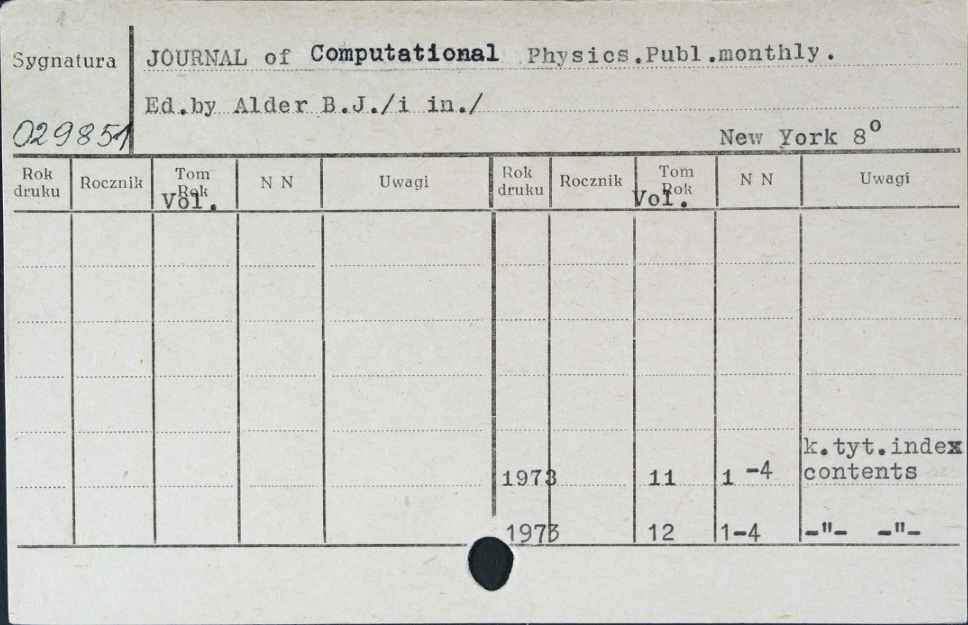 Sygnatura JOURNAL of Computational Physics.Publ.monthly.
Ed.by Alder B.J./i in./
029851 New York 8º
Rok druku Rocznik Tom Rok Vol. N N Uwagi Rok druku Rocznik Tom Rok Vol. N N Uwagi
k.tyt.index
1973 11 1-4 contents
1973 12 1-4 -"- -"-